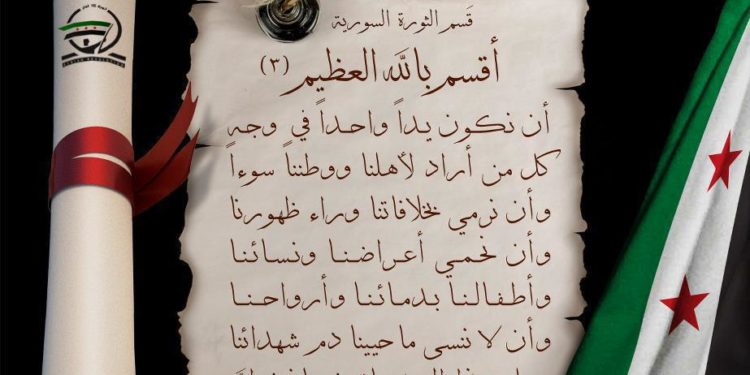 قَسم الثورة السورية
أقسم بالله العظيم (٣)
أن نكون يداً واحداً في وجه
كل من أراد لأهلنا ووطننا سوءاً
وأن نرمي بخلافاتنا وراء ظهورنا
وأن نحمي أعراضنا ونسائنا
وأطفالنا بدمائنا وأرواحنا
وأن لا ننسى ما حيينا دم شهدائنا